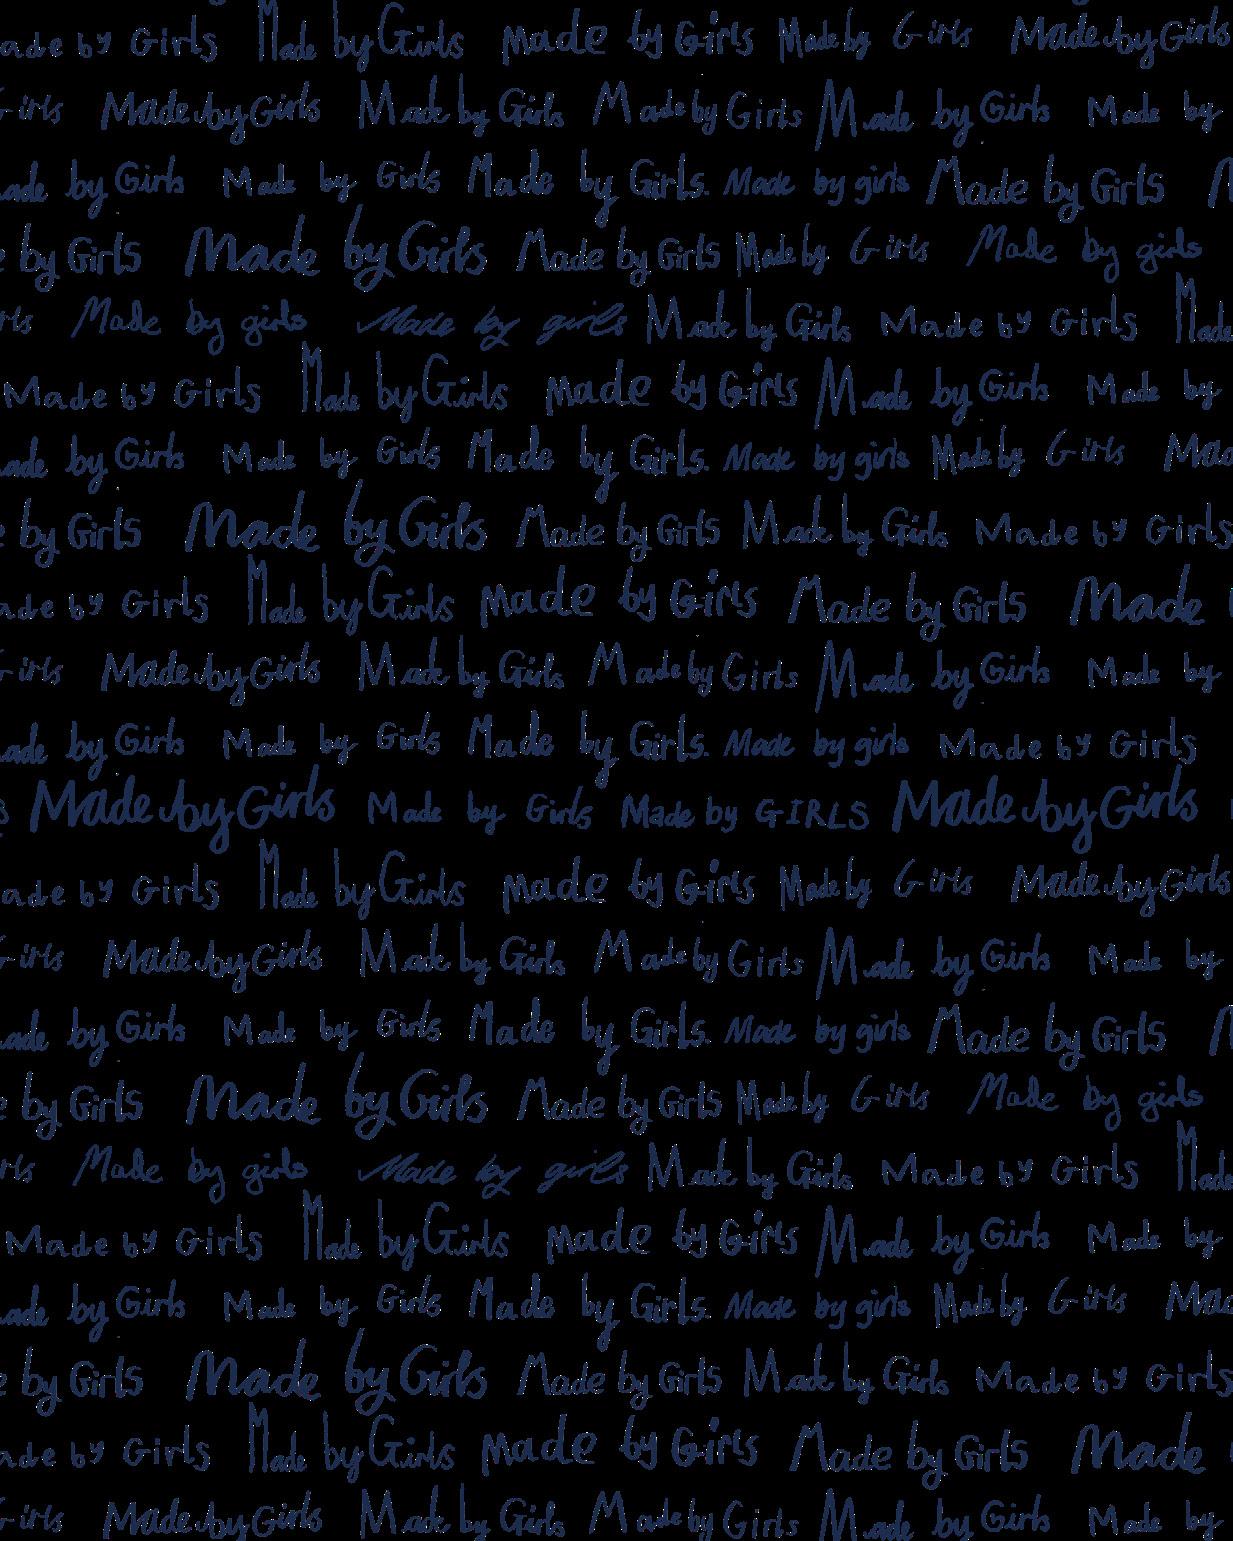 ade by Girls Made by Girls Made by Girls Made by Girls Made by Girls
Girls Made by Girls Made by Girls Made by Girls Made by Girls Made by
ade by Girls Made by Girls Made by Girls. Made by girls Made by Girls M
e by Girls Made by Girls Made by Girls Made by Girls Made by girls
rls Made by girls Made by girls Made by Girls Made by Girls Made
Made by Girls Made by Girls Made by Girls Made by Girls Made by
ade by Girls Made by Girls Made by Girls. Made by girls Made by Girls Mad
e by Girls Made by Girls Made by Girls Made by Girls Made by Girls
ade by Girls Made by Girls Made by Girls Made by Girls Made
Girls Made by Girls Made by Girls Made by Girls Made by Girls Made by
ade by Girls Made by Girls Made by Girls. Made by girls Made by Girls
s Made by Girls Made by Girls Made by GIRLS Made by Girls
ade by Girls Made by Girls Made by Girls Made by Girls Made by Girls
Girls Made by Girls Made by Girls Made by Girls Made by Girls Made by
ade by Girls Made by Girls Made by Girls. Made by girls Made by Girls M
e by Girls Made by Girls Made by Girls Made by Girls Made by girls
rls Made by girls Made by girls Made by Girls Made by Girls Made
Made by Girls Made by Girls Made by Girls Made by Girls Made by
ade by Girls Made by Girls Made by Girls. Made by girls Made by Girls Mad
e by Girls Made by Girls Made by Girls Made by Girls Made by Girls
ade by Girls Made by Girls Made by Girls Made by Girls Made
Girls Made by Girls Made by Girls Made by Girls Made by Girls Made by